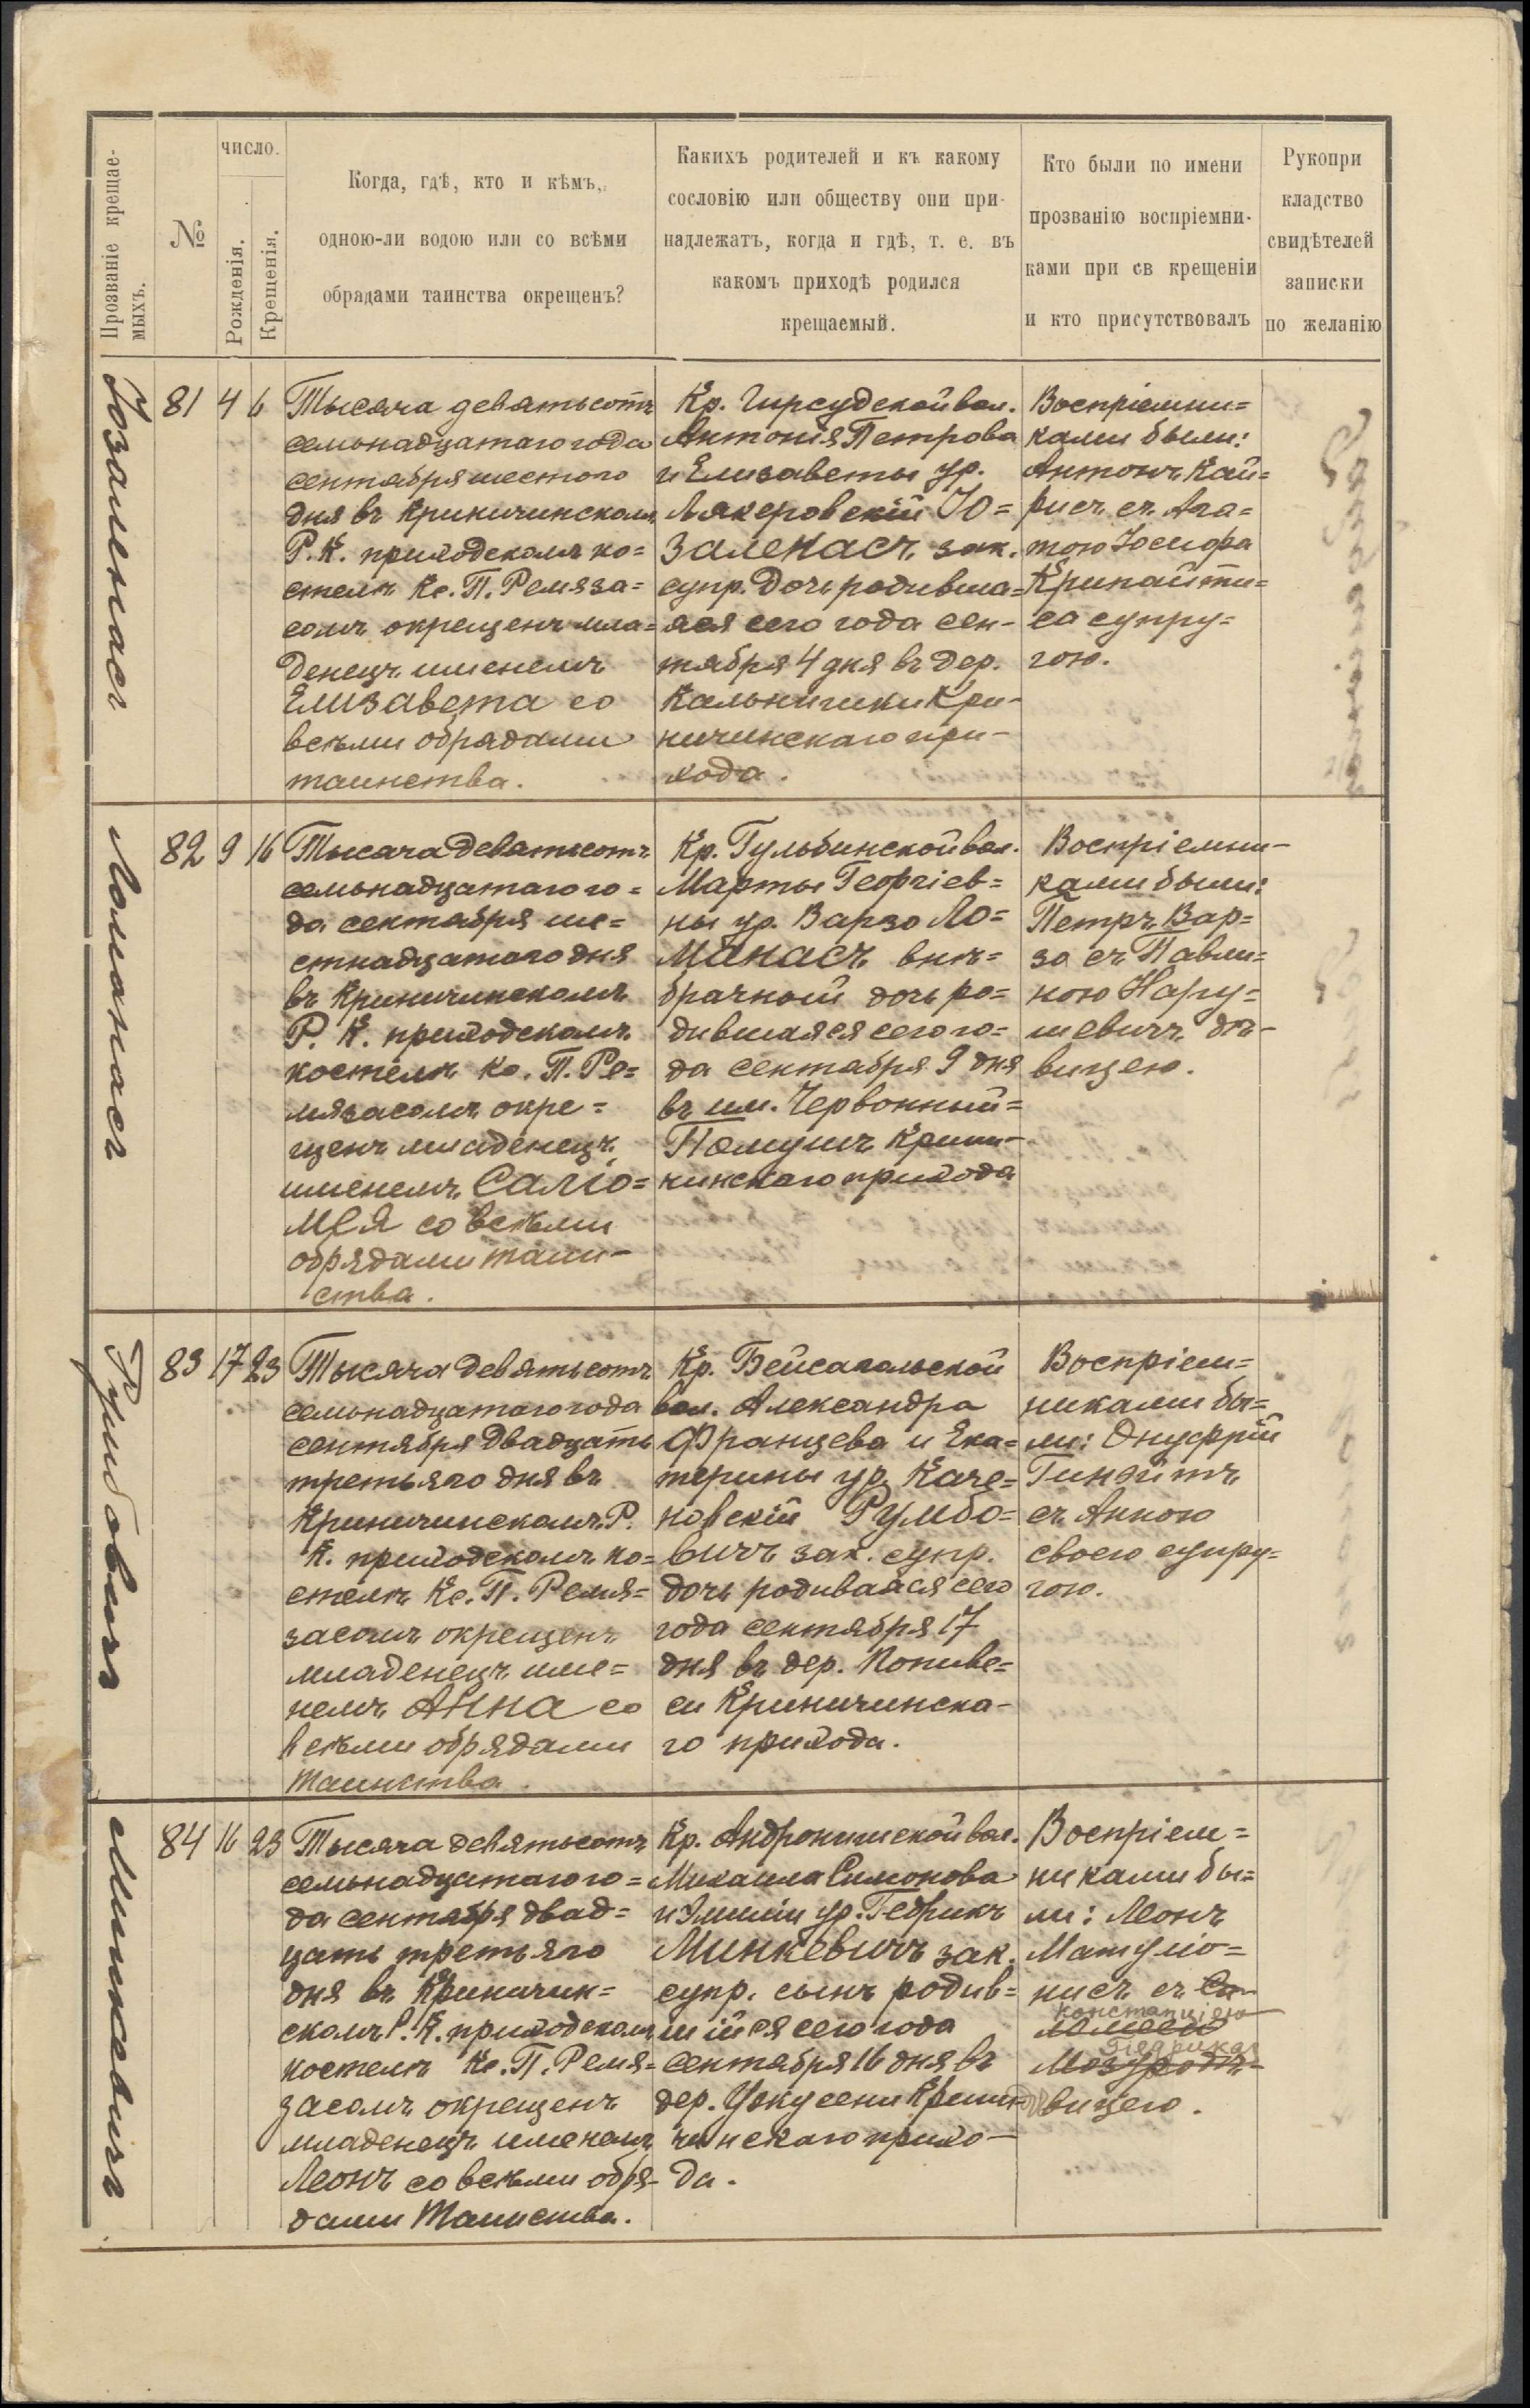 Прозваніе крещае-
мыхъ.
№
число.
Рожденія.
Крещенія.
Когда, гдѣ, кто и кѣмъ,
одною-ли водою или со всѣми
обрядами таинства окрещенъ?
Какихъ родителей и къ какому
сословію или обществу они при-
надлежатъ, когда и гдѣ, т. е. въ
какомъ приходѣ родился
крещаемый.
Кто были по имени
прозванію воспріемни-
ками при св крещеніи
и кто присутствовалъ
Рукопри
кладство
свидѣтелей
записки
по желанію
Юзаленасъ
81 4 6
Тысяча девятьсотъ
семьнадцатаго года
сентября шестого
дня въ Криничинскомъ
Р. К. приходскомъ ко=
стелѣ Кс. П. Ремяза=
сомъ окрещенъ мла=
денецъ именемъ
Елизавета со
всѣми обрядами
таинства.
Кр. Гирсудской вол.
Антонія Петрова
и Елизаветы ур.
Лякеровскій Ю=
заленасъ, зак.
супр. дочь родивша=
яся сего года сен-
тября 4 дня въ дер.
Кальнишки Кри-
ничинскаго при-
хода.
Воспріемни=
ками были:
Антонъ Кай=
рисъ съ Ага=
тою Юсифа
Крипайти=
са супру=
гою.
Ломанасъ
82 9 16
Тысяча девятьсотъ
семьнадцатаго го=
да сентября ше=
стнадцатаго дня
въ Криничинскомъ
Р. К. приходскомъ
костелѣ Кс. П. Ре=
мязасомъ окре=
щенъ младенецъ
именемъ Саліо=
мея со всѣми
обрядами таин-
ства.
Кр. Гульбинской вол.
Марты Георгіев=
ны ур. Варзо Ло=
манасъ внѣ=
брачной дочь ро=
дившаяся сего го=
да сентября 9 дня
въ им. Червонный=
Помушъ Крини-
чинскаго прихода
Воспріемни-
ками были:
Петръ Вар=
зо съ Павли=
ною Нару=
шевичъ дѣ-
вицею.
Румбовичъ
83 17 23
Тысяча девятьсотъ
семьнадцатаго года
сентября двадцать
третьяго дня въ
Криничинскомъ Р.
К. приходскомъ ко=
стелѣ Кс. П. Ремя=
засомъ окрещенъ
младенецъ име=
немъ Анна со
всѣми обрядами
таинства.
Кр. Бейсагольской
вол. Александра
Францева и Ека=
терины ур. Каче=
новскій Румбо=
вичъ зак. супр.
дочь родиваяся сего
года сентября 17
дня въ дер. Попиве=
си Криничинска-
го прихода.
Воспріем=
никами бы=
ли: Онуфрій
Гинэйтъ
съ Анною
своею супру=
гою.
Минкевичъ
84 16 23
Тысяча девятьсотъ
семьнадцатаго го=
да сентября двад=
цать третьяго
дня въ Криничин=
скомъ Р. К. приходскомъ
костелѣ Кс. П. Ремя=
засомъ окрещенъ
младенецъ именемъ
Леонъ со всѣми обря-
дами таинства.
Кр. Андронишской вол.
Михаила Симонова
и Эмиліи ур. Гедрикъ
Минкевичъ зак.
супр. сынъ родив=
шійся сего года
сентября 16 дня въ
дер. Ужусени Крини=
чинскаго прихо-
да.
Воспріем=
никами бы=
ли: Леонъ
Матуліо=
нисъ съ Са-
Констанціею
Гедрикъ
Мозуро дѣ-
вицею.